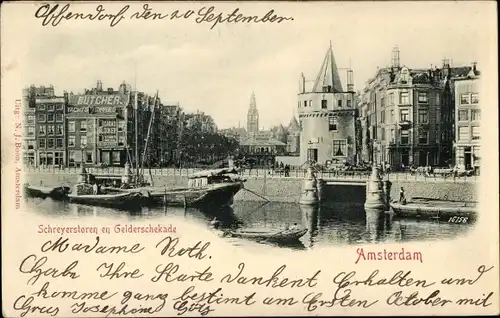 Offendorf den 20 September.
BUTCHER.
Uitg. N. J. Boon, Amsterdam
Schreyerstoren en Gelderschekade
16158
Amsterdam
Madame Roth.
Habe Ihre Karte dankent Erhalten und
komme ganz bestimmt am Ersten October mit
Grus Josephine Götz